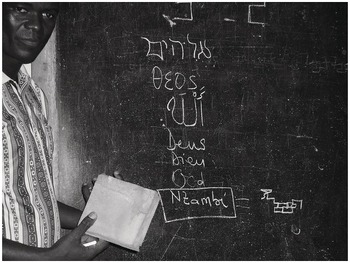 אלהים
θεος
الله
Deus
Dieu
God
Nzambi